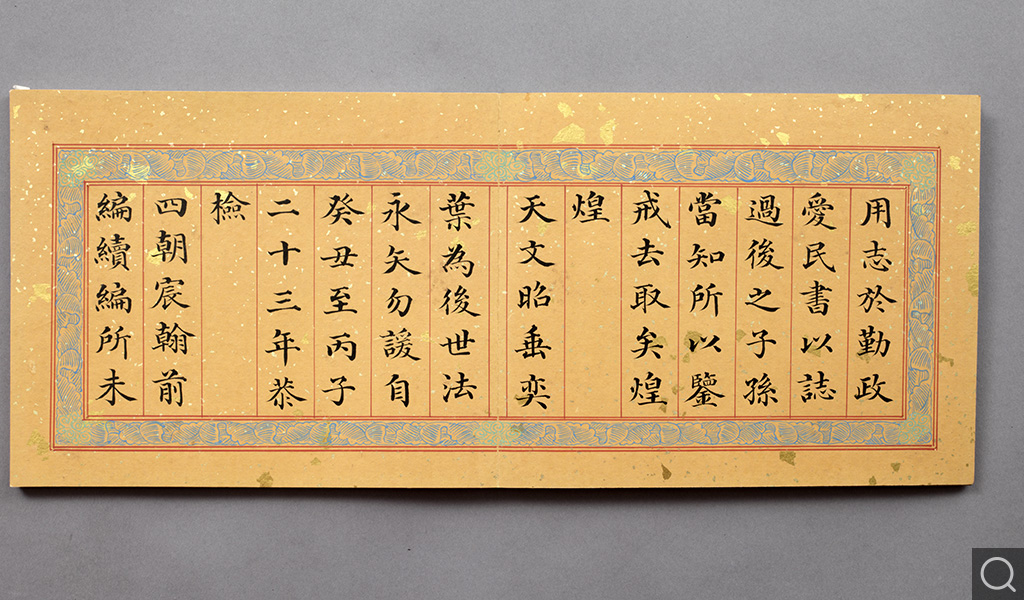 用志於勤政
愛民書以誌
過後之子孫
當知所以鑒
戒去取矣煌
煌
天文昭垂奕
葉為後世法
永矢勿諼自
癸丑至丙子
二十三年恭
檢
四朝宸翰前
編續編所未